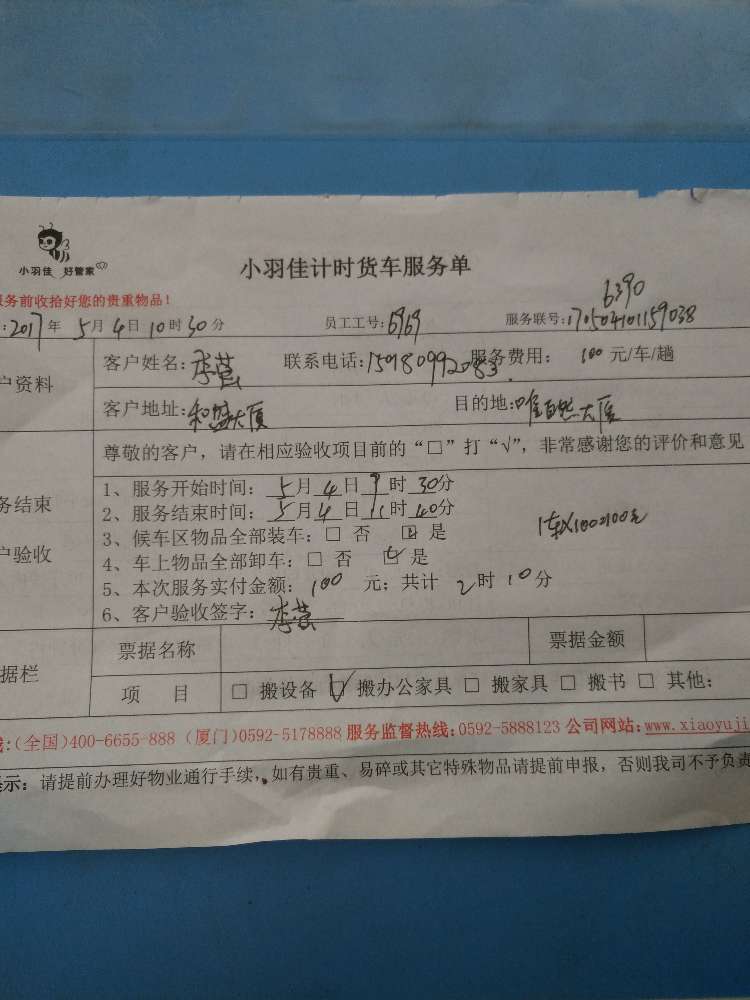 小羽佳 好管家
小羽佳计时货车服务单
服务前收拾好您的贵重物品！
6390
:2017年 5月4日10时30分 员工工号:6969 服务联号:170504101159038
户资料 客户姓名: 联系电话:15980992083 服务费用: 100 元/车/趟
客户地址:和盛大厦 目的地:唯自然大厦
尊敬的客户，请在相应验收项目前的“□”打“√”，非常感谢您的评价和意见
务结束
户验收
1、服务开始时间: 5月4日9时30分
2、服务结束时间: 5月4日11时40分
3、候车区物品全部装车: □ 否 ☑ 是
1车X100=100元
4、车上物品全部卸车: □ 否 ☑ 是
5、本次服务实付金额: 100 元; 共计 2时10分
6、客户验收签字:
据栏 票据名称 票据金额
项 目 □ 搬设备 ☑ 搬办公家具 □ 搬家具 □ 搬书 □ 其他:
线:(全国)400-6655-888 (厦门)0592-5178888 服务监督热线:0592-5888123 公司网站:www.xiaoyuji
示: 请提前办理好物业通行手续, 如有贵重、易碎或其它特殊物品请提前申报, 否则我司不予负责